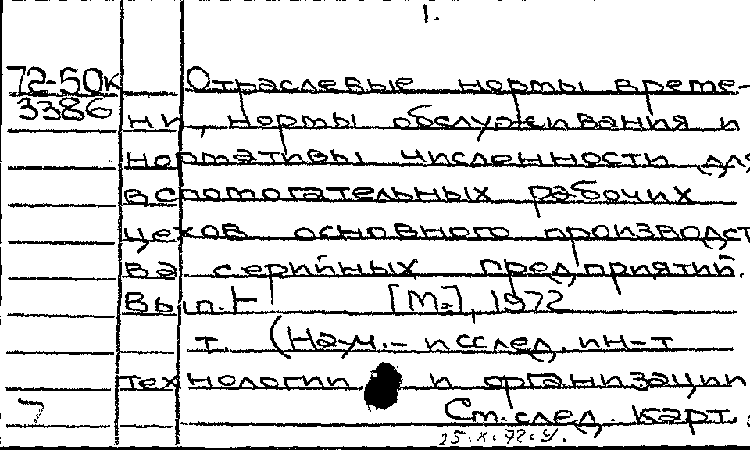 1.
72-50к Отраслевые нормы време-
3386 ни, нормы обслуживания и
нормативы численности для
вспомогательных рабочих
цехов основного производст
ва серийных предприятий.
Вып. 1- [М.], 1972
т. (Науч.- исслед. ин-т
технологии и организации
7 См. след. карт.